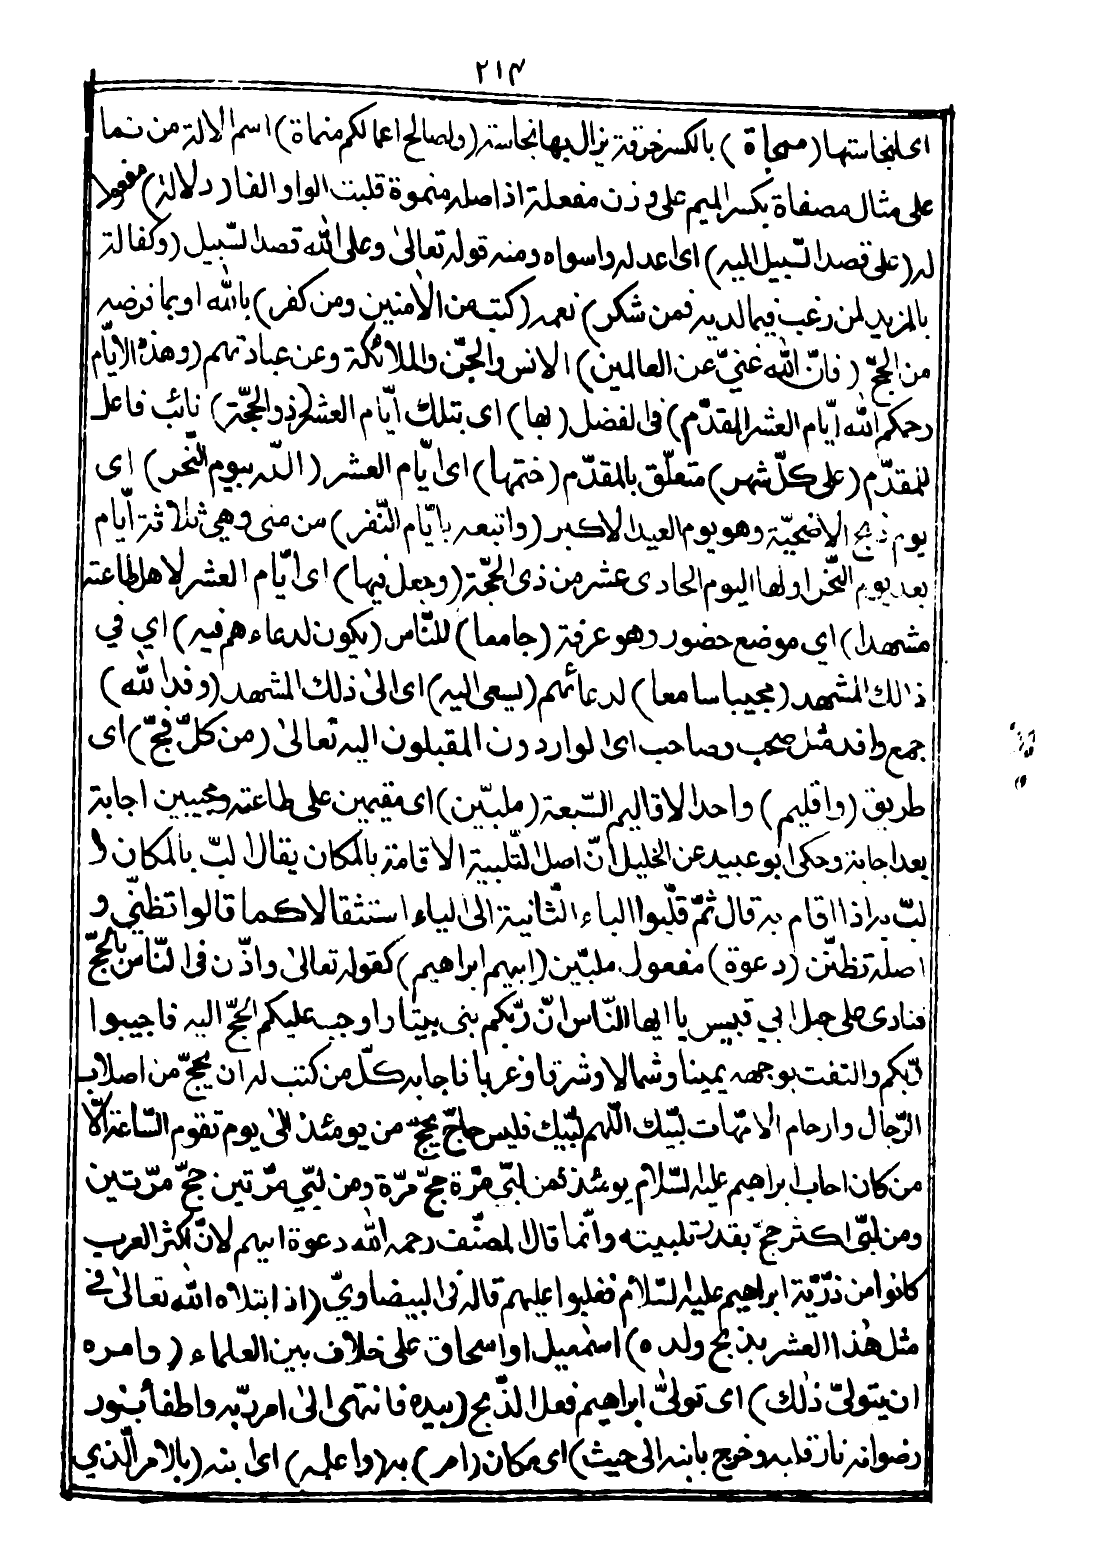 ٢١٣
اى لنجاستها (ممحاة) بالكسر خرقة يزال بها نجاسته (ولصالح اعمالكم منماة) اسم الالة من نما
على مثال مصفاة بكسر الميم على وزن مفعلة اذ اصله منموة قلبت الواو الفا (ودلالة) مفعولا
له (على قصد السّبيل اليه) اى اعدله واسواه ومنه قوله تعالىٰ وعلى الله قصد السّبيل (وكفالة
بالمزيد لمن رغب فيما لديه فمن شكر) نعمه (كتب من الاٰمنين ومن كفر) بالله او بما فرضه
من الحجّ (فانّ الله غنيّ عن العالمين) الانس والجنّ والملائكة وعن عبادتهم (وهذه الايّام
رحمكم الله ايّام العشر المقدّم) فى الفضل (بها) اى بتلك ايّام العشر (ذو الحجّة) نائب فاعل
للمقدّم (على كلّ شهر) متعلّق بالمقدّم (ختمها) اى ايّام العشر (اللّه بيوم النّحر) اى
يوم ذبح الاضحيّة وهو يوم العيد الاكبر (واتبعه بايّام النّفر) من منى وهي ثلاثة ايّام
بعد يوم النّحر اولها اليوم الحادى عشر من ذى الحجّة (وجعل فيها) اى ايّام العشر لاهل طاعته
مشهدا) اي موضع حضور وهو عرفة (جامعا) للنّاس (يكون لدعاءهم فيه) اي في
ذالك المشهد (مجيبا سامعا) لدعائهم (يسعى اليه) اى الىٰ ذلك المشهد (وفد الله)
جمع وافد مثل صحب وصاحب اى الواردون المقبلون اليه تعالىٰ (من كلّ فجّ) اى
طريق (واقليم) واحد الاقاليم السّبعة (ملبّين) اى مقيمين على طاعته ومجيبين اجابة
بعد اجابة وحكى ابو عبيد عن الخليل انّ اصل التّلبية الاقامة بالمكان يقال البّ بالمكان و
لبّ به اذا اقام به قال ثمّ قلبوا الباء الثّانية الى الياء استثقالا كما قالوا تظنّي و
اصله تظنّن (دعوة) مفعول ملبّين (ابيهم ابراهيم) كقوله تعالىٰ واذّن فى النّاس بالحجّ
فنادى على جبل ابي قبيس يا ايها النّاس انّ ربّكم بنى بيتا واوجب عليكم الحجّ اليه فاجيبوا
ربّكم والتفت بوجهه يمينا وشمالا وشرقا وغربا فاجابه كلّ من كتب له ان يحجّ من اصلاب
الرّجال وارحام الامّهات لبّيك اللّهم لبّيك فليس حاجّ يحجّ من يومئذ الىٰ يوم تقوم السّاعة الّا
من كان اجاب ابراهيم عليه السّلام يومئذ فمن لبّي مرّة حجّ مرّة ومن لبّي مرّتين حجّ مرّتين
ومن لبّى اكثر حجّ بقدر تلبيته وانّما قال المصنّف رحمه الله دعوة ابيهم لانّ اكثر العرب
كانوا من ذرّيّة ابراهيم عليه السّلام فغلبوا عليهم قاله فى البيضاويّ (اذ ابتلاه الله تعالىٰ في
مثل هٰذا العشر بذبح ولده) اسمٰعيل او اسحاق على خلاف بين العلماء (وامره
ان يتولىّ ذٰلك) اى تولّى ابراهيم فعل الذّبح (بيده فانتهى الىٰ امر ربّه واطفأ بنور
رضوانه نار قلبه وخرج بابنه الى حيث) اى مكان (امر) به (واعلمه) اى ابنه (بالامر الّذي